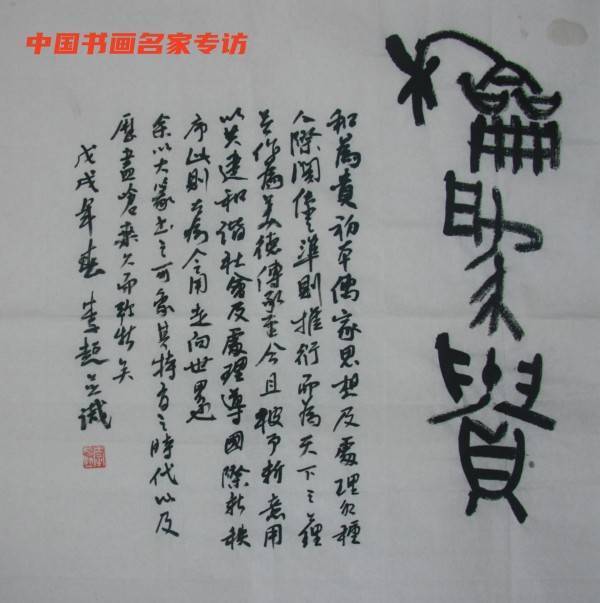 中国书画名家专访
龢為貴
和為貴初本儒家思想及處理各種
人際關係之準則推行而為天下之謹
並作為美德傳承至今且被予新意用
以共建和諧社會及處理導國際新秩
序此則古為今用走向世界也
余以大篆書之可象其特有之時代以及
歷盡滄桑久而
戊戌年 李超 識